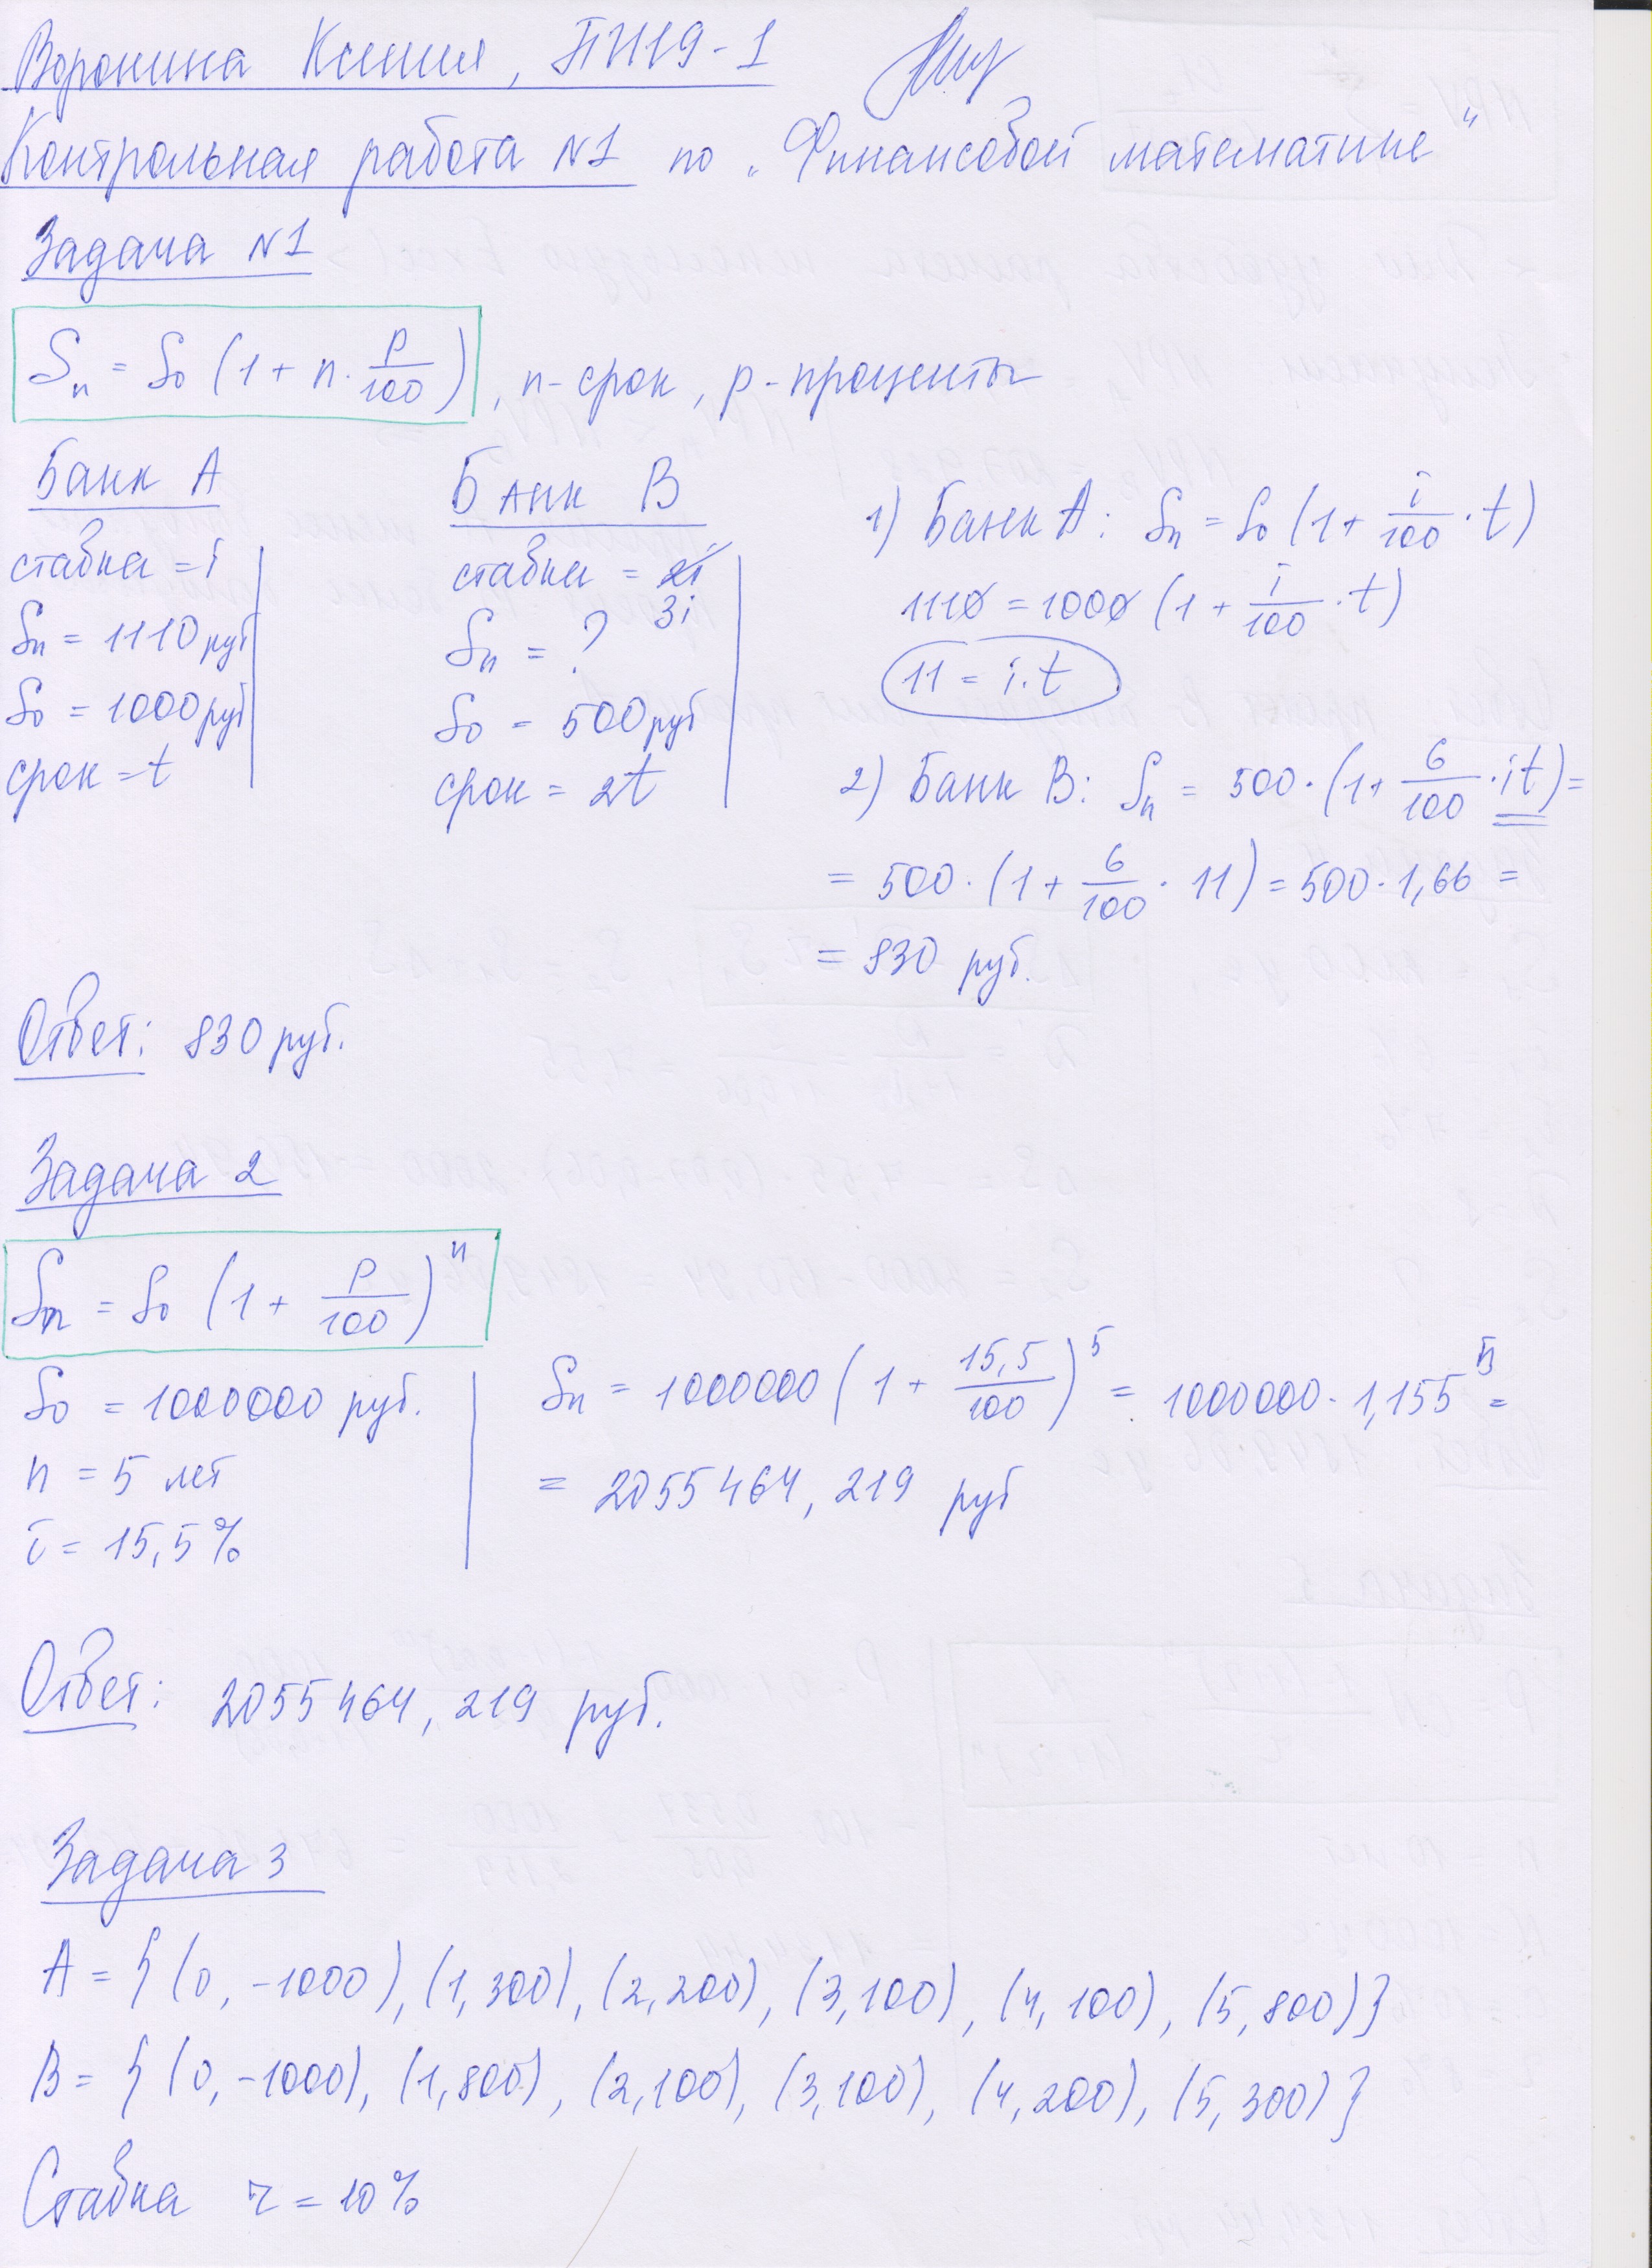 Воронина Ксения, ПИ19-1
Контрольная работа №1 по „Финансовой математике"
Задача №1
Sn = S0 (1 + n · p/100), n-срок, p-проценты
Банк А
ставка = i
Sn = 1110 руб
S0 = 1000 руб
срок = t
Банк В
ставка = 2i
3i
Sn = ?
S0 = 500 руб
срок = 2t
1) Банк А: Sn = S0 (1 + i/100 · t)
1110 = 1000 (1 + i/100 · t)
11 = i·t
2) Банк В: Sn = 500 · (1 + 6/100 · it) =
= 500 · (1 + 6/100 · 11) = 500 · 1,66 =
= 830 руб.
Ответ: 830 руб.
Задача 2
Sn = S0 (1 + p/100)^n
S0 = 1000000 руб.
n = 5 лет
i = 15,5%
Sn = 1000000 (1 + 15,5/100)^5 = 1000000 · 1,155^5 =
= 2055464,219 руб
Ответ: 2055464,219 руб.
Задача 3
A = {(0, -1000), (1, 300), (2, 200), (3, 100), (4, 100), (5, 800)}
B = {(0, -1000), (1, 800), (2, 100), (3, 100), (4, 200), (5, 300)}
Ставка r = 10%